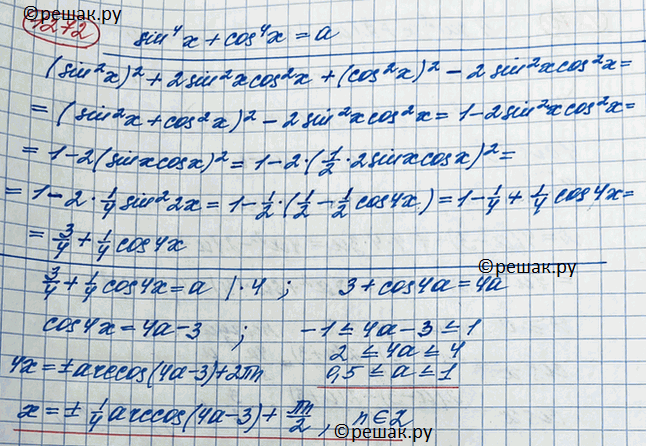 ©решак.ру
1272 sin⁴x + cos⁴x = a
(sin²x)² + 2sin²xcos²x + (cos²x)² − 2sin²xcos²x =
= (sin²x + cos²x)² − 2sin²xcos²x = 1 − 2sin²xcos²x =
= 1 − 2(sinxcosx)² = 1 − 2·(1/2·2sinxcosx)² =
= 1 − 2·1/4 sin²2x = 1 − 1/2·(1/2 − 1/2 cos4x) = 1 − 1/4 + 1/4 cos4x =
= 3/4 + 1/4 cos4x
©решак.ру
3/4 + 1/4 cos4x = a |·4 ; 3 + cos4a = 4a
cos4x = 4a − 3 ; −1 ≤ 4a − 3 ≤ 1
2 ≤ 4a ≤ 4
4x = ± arccos(4a − 3) + 2πn 0,5 ≤ a ≤ 1
x = ± 1/4 arccos(4a − 3) + πn/2, n ∈ Z
©решак.ру